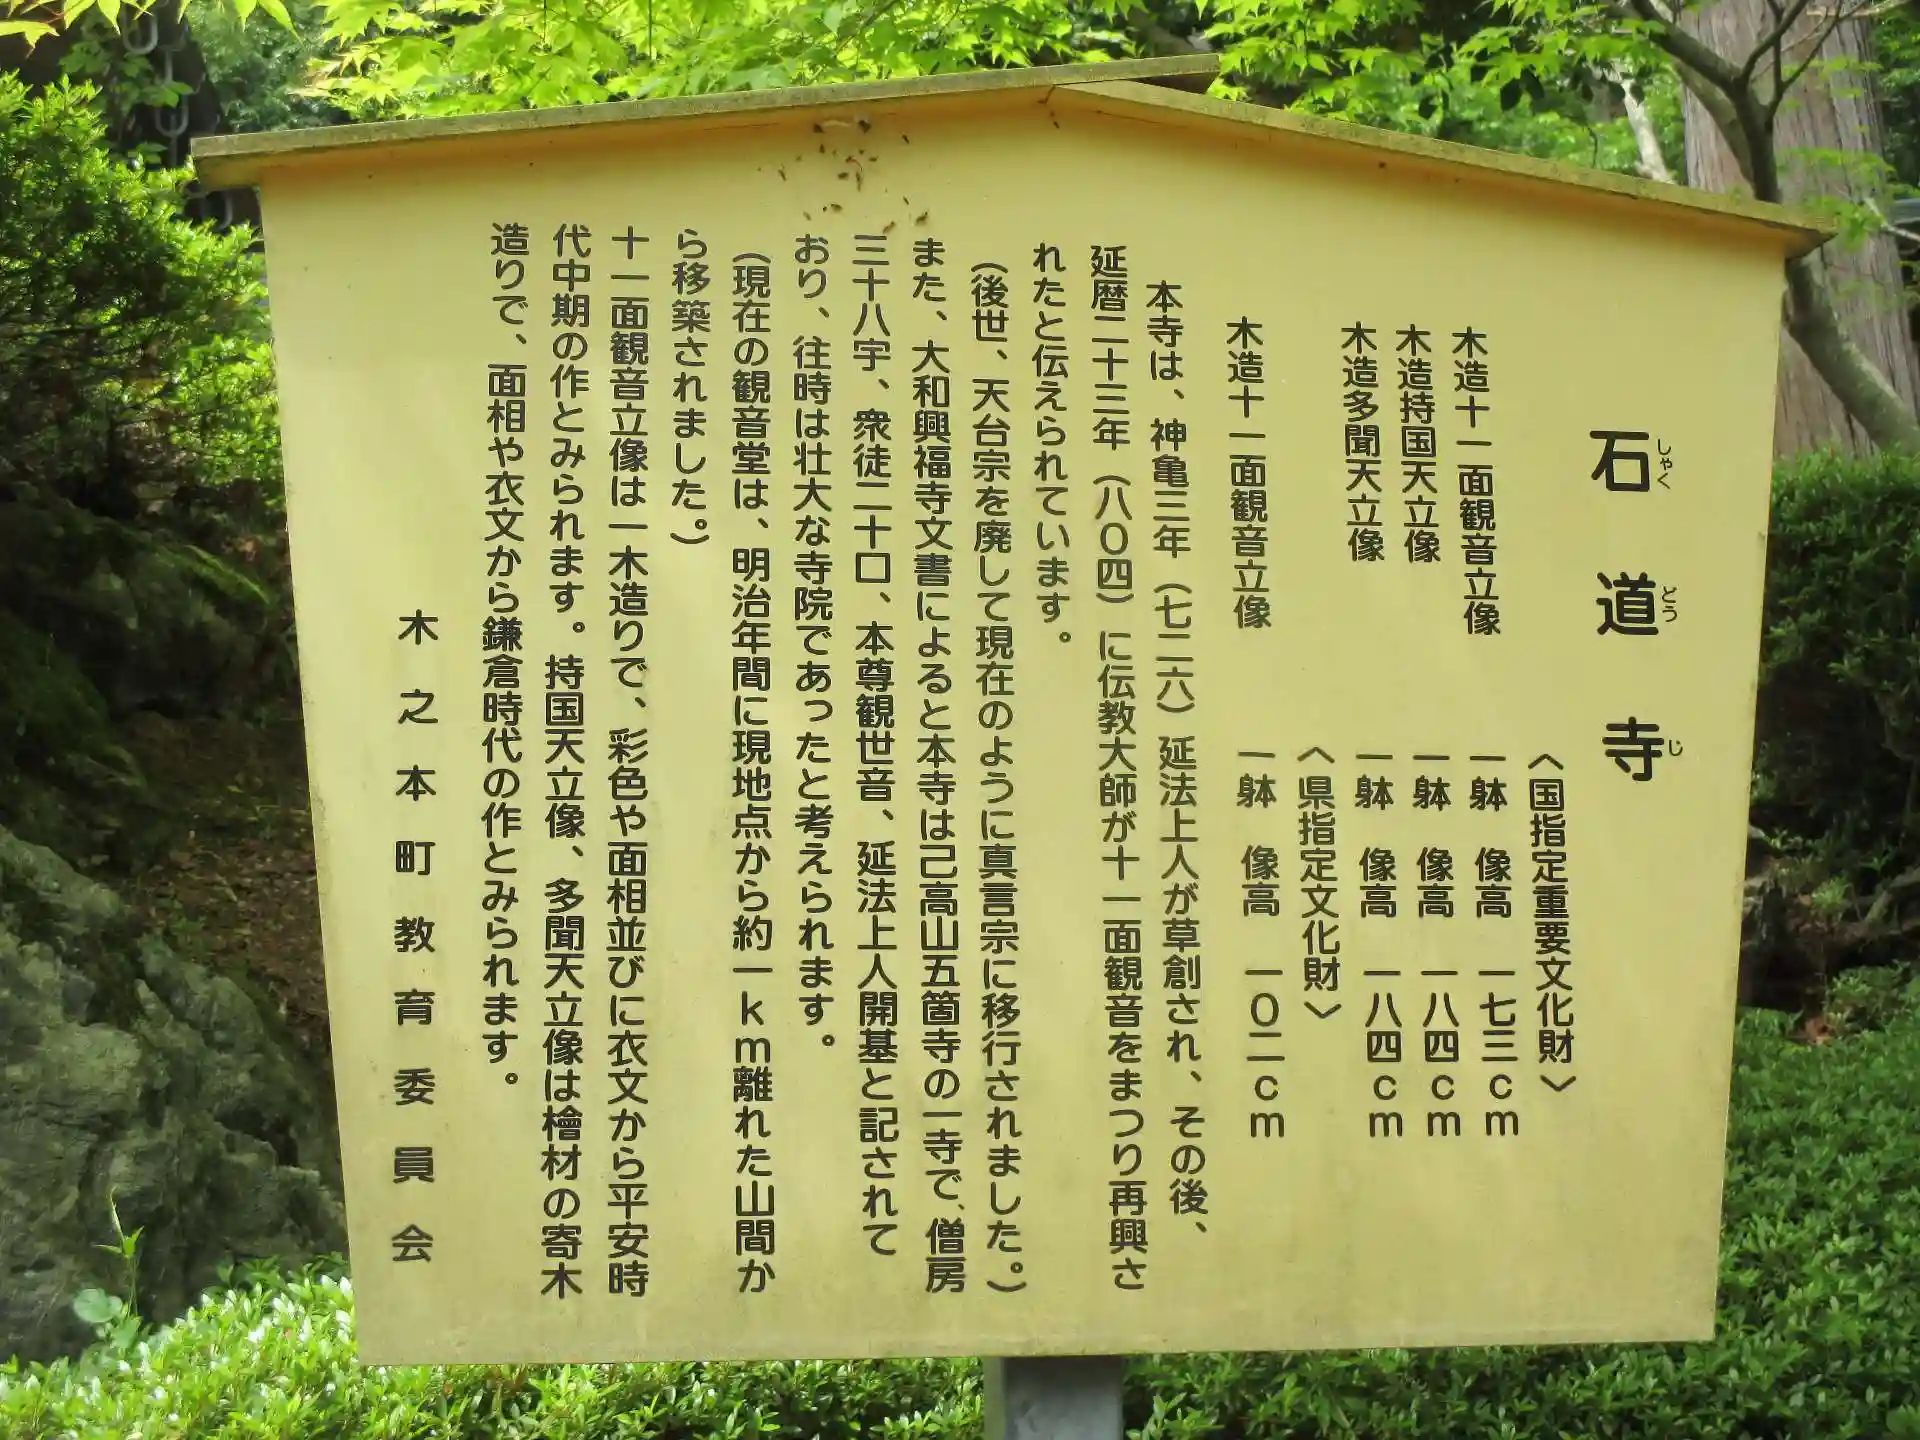 石道寺
しゃくどうじ
〈国指定重要文化財〉
木造十一面観音立像 一躰 像高 一七三cm
木造持国天立像 一躰 像高 一八四cm
木造多聞天立像 一躰 像高 一八四cm
〈県指定文化財〉
木造十一面観音立像 一躰 像高 一〇二cm
本寺は、神亀三年（七二六）延法上人が草創され、その後、
延暦二十三年（八〇四）に伝教大師が十一面観音をまつり再興さ
れたと伝えられています。
（後世、天台宗を廃して現在のように真言宗に移行されました。）
また、大和興福寺文書によると本寺は己高山五箇寺の一寺で、僧房
三十八宇、衆徒二十口、本尊観世音、延法上人開基と記されて
おり、往時は壮大な寺院であったと考えられます。
（現在の観音堂は、明治年間に現地点から約一km離れた山間か
ら移築されました。）
十一面観音立像は一木造りで、彩色や面相並びに衣文から平安時
代中期の作とみられます。持国天立像、多聞天立像は檜材の寄木
造りで、面相や衣文から鎌倉時代の作とみられます。
木之本町教育委員会